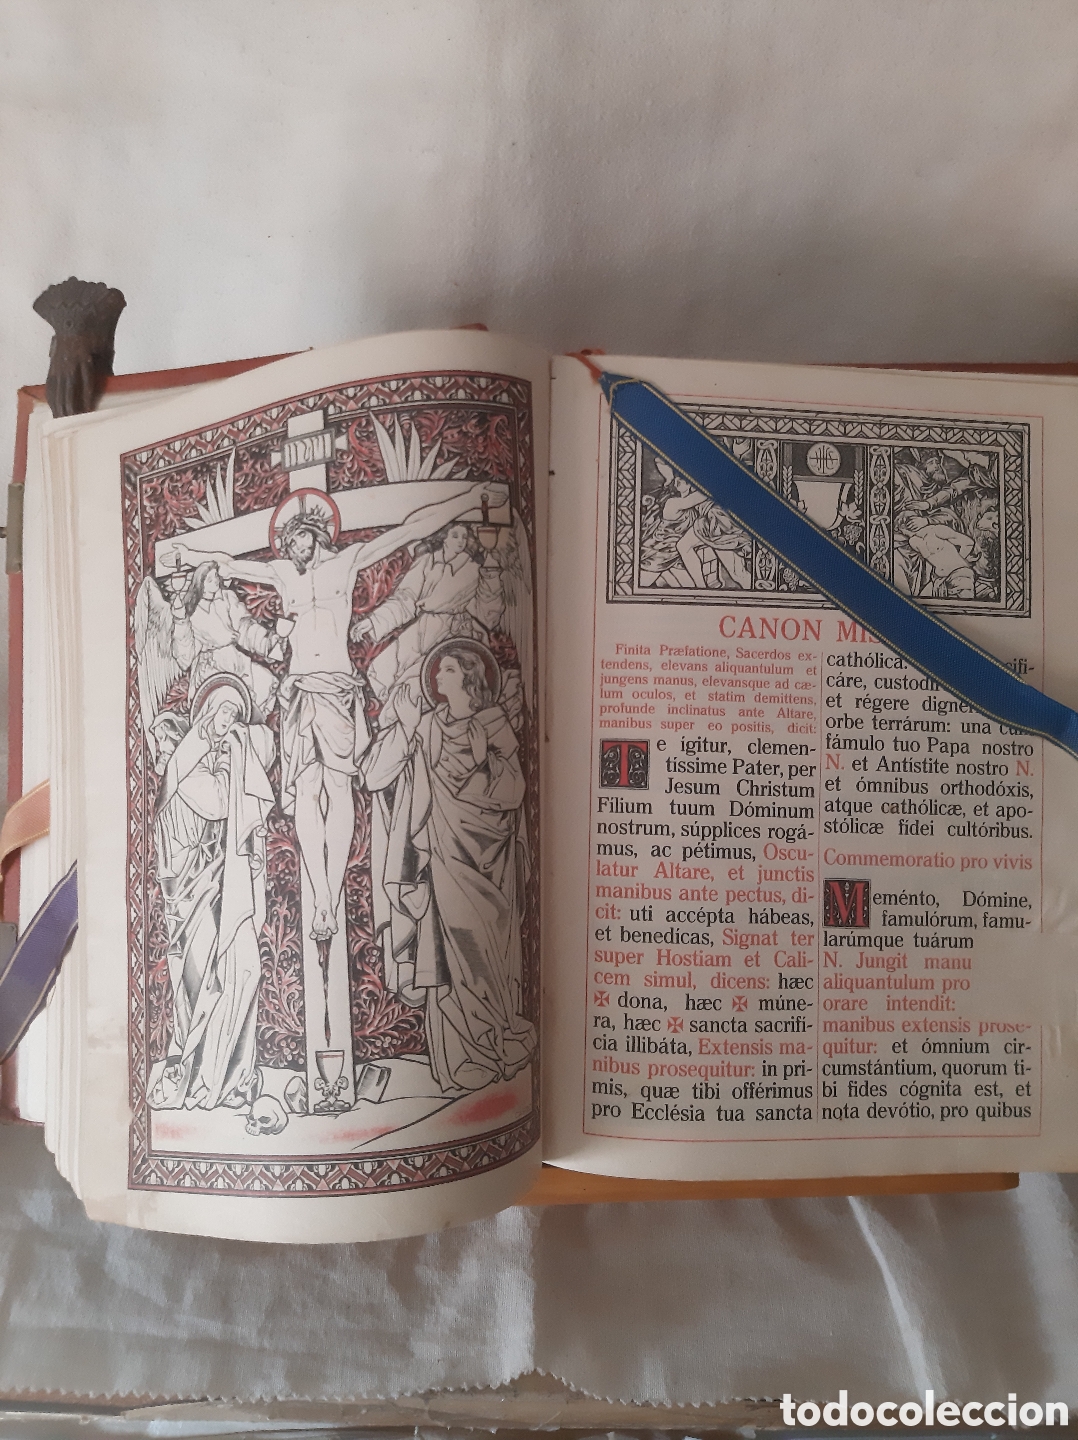 CANON MIS
Finita Præfatione, Sacerdos ex-
tendens, elevans aliquantulum et
jungens manus, elevansque ad cæ-
lum oculos, et statim demittens,
profunde inclinatus ante Altare,
manibus super eo positis, dicit:
Te ígitur, clemen-
tíssime Pater, per
Jesum Christum
Fílium tuum Dóminum
nostrum, súpplices rogá-
mus, ac pétimus, Oscu-
latur Altare, et junctis
manibus ante pectus, di-
cit: uti accépta hábeas,
et benedícas, Signat ter
super Hostiam et Cali-
cem simul, dicens: hæc
✠ dona, hæc ✠ múne-
ra, hæc ✠ sancta sacrifí-
cia illibáta, Extensis ma-
nibus prosequitur: in pri-
mis, quæ tibi offérimus
pro Ecclésia tua sancta
cathólica: ifi-
cáre, custod
et régere dign
orbe terrárum: una cum
fámulo tuo Papa nostro
N. et Antístite nostro N.
et ómnibus orthodóxis,
atque cathólicæ, et apo-
stólicæ fídei cultóribus.
Commemoratio pro vivis
Meménto, Dómine,
famulórum, famu-
larúmque tuárum
N. Jungit manu
aliquantulum pro
orare intendit:
manibus extensis prose-
quitur: et ómnium cir-
cumstántium, quorum ti-
bi fides cógnita est, et
nota devótio, pro quibus
todocoleccion